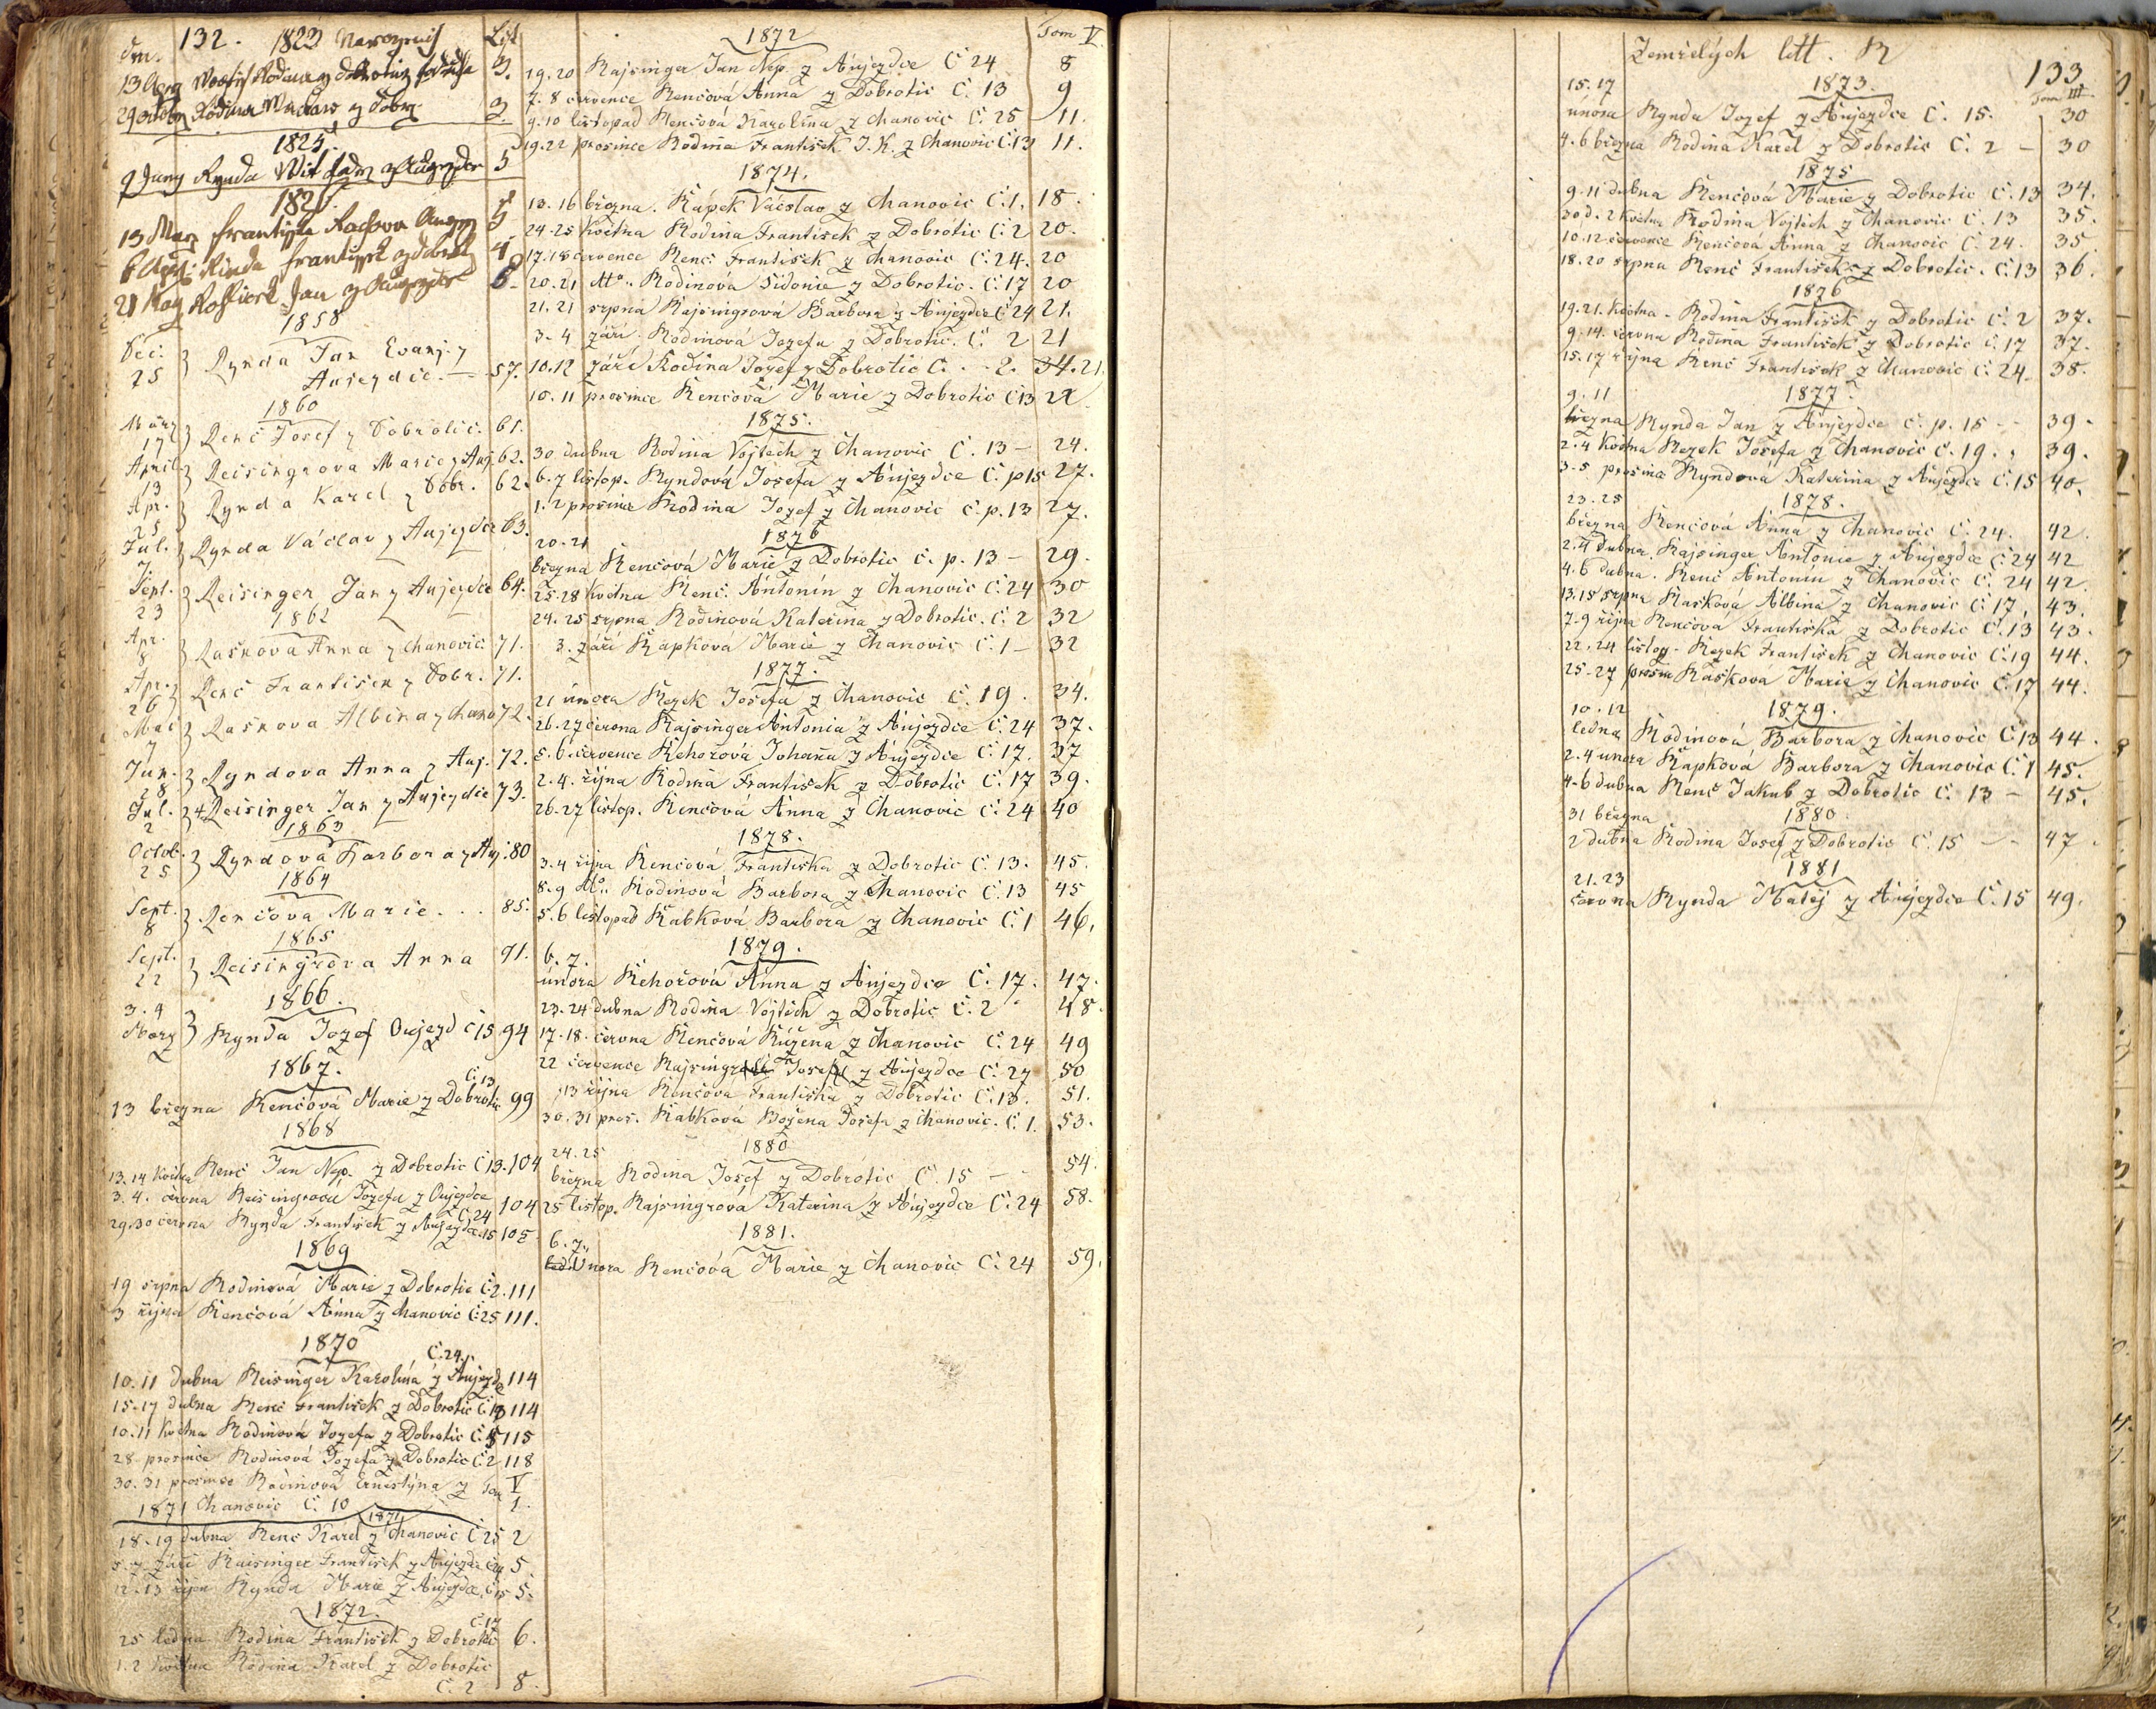 132. 1823 Narozených List
Rodina Václav z Dobr. 3.
1825.
9 Juny Rynda Vít z Augezdce 5
182
13 Marz Frantisska
6 Rinda Frantissek z
21 May Jan z Augezdce
1858
Dec. 25 } Rynda Jan Evanj. z
Aujezdce. — 57.
1860
März 17 } Renč Josef z Dobrotic. 61.
April 13 } Reisingrova Marie z Auj. 62.
Apr. 25 } Rynda Karel z Dobr. 62.
Jul. 7 } Rynda Václav z Aujezdce 63.
Sept. 23 } Reisinger Jan z Aujezdce 64.
1862
Apr. 8 } Raškova Anna z Chanovic. 71.
Apr. 26 } Renč František z Dobr. 71.
Mai 7 } Raškova Albina z Chano 72.
Jun. 28 } Ryndova Anna z Auj. 72.
Jul. 2 } Reisinger Jan z Aujezdce 73.
1863
Octob. 25 } Ryndová Barbora z Auj. 80
1864
Sept. 8 } Renčova Marie . . . 85.
1865
Sept. 22 } Reisingrova Anna 91.
1866.
3. 4 Marz } Rynda Jozef Oujezd č 15 94
1867.
Č. 13
13 března Renčová Marie z Dobrotic 99
1868
13. 14 května Renč Jan Nep. z Dobrotic Č 13. 104
3. 4. června Reisingrová Jozefa z Oujezdce
Č 24 104
29. 30 června Rynda František z Aujezdce 15 105
1869
19 srpna Rodinová Marie z Dobrotic Č 2. 111
3 října Renčová Anna z Chanovic Č 25 111.
1870
Č. 24.
10. 11 dubna Reisinger Karolína z Aujezd 114
15-17 dubna Renč František z Dobrotic Č. 13 114
10. 11 května Rodinová Jozefa z Dobrotic Č. 115
28 prosince Rodinová Jozefa z Dobrotic Č 2 118
30. 31 prosince Rodinová Ernestýna z Tom V
1871 Chanovic Č. 10 1.
1871
18-19 dubna Renč Karel z Chanovic Č 25 2
5. 7. září Raisinger František z Aujezdce 5.
12-13 října Rynda Marie z Aujezdce, Č 15 5.
1872.
Č. 17
25 ledna Rodina František z Dobrotic 6.
1. 2 května Rodina Karel z Dobrotic
Č. 2 8.
1872 Tom V.
19. 20 Rajsinger Jan Nep. z Aujezdce Č 24 8
7. 8 července Renčová Anna z Dobrotic Č. 13 9
9. 10 listopad Renčová Karolína z Chanovic Č. 25 11.
19. 22 prosince Rodina František J. K. z Chanovic Č. 13 11.
1874.
13. 16 března. Rápek Václav z Chanovic Č. 1. 18.
24-25 května Rodina František z Dobrotic Č. 2 20.
17. 18 července Renč František z Chanovic Č. 24. 20
20. 21 tto. Rodinová Sidonie z Dobrotic. Č. 17 20
21. 21 srpna Rajsingrová Barbora z Aujezdce Č 24 21.
3. 4 září. Rodinová Jozefa z Dobrotic. Č. 2 21
10. 12 září Rodina Jozef z Dobrotic Č. . . 2. 34. 21.
10. 11 prosince Renčová Marie z Dobrotic Č 13 22
1875.
30 dubna Rodina Vojtěch z Chanovic Č. 13 — 24.
6. 7 listop. Ryndová Josefa z Aujezdce Č. p 15 27.
1. 2 prosince Rodina Jozef z Chanovic č. p. 13 27.
1876
20. 21
března Renčová Marie z Dobrotic č. p. 13 — 29.
25-28 května Renč. Antonín z Chanovic Č. 24 30
24. 25 srpna Rodinová Kateřina z Dobrotic. Č. 2 32
3. září Rapková Marie z Chanovic Č. 1 — 32
1877.
21 února Rezek Josefa z Chanovic Č. 19. 34.
26. 27 června Rajsinger Antonia z Aujezdce Č. 24 37.
5. 6. července Řehořová Johana z Aujezdce Č. 17. 37
2. 4. října Rodina František z Dobrotic Č. 17 39.
26-27 listop. Renčová Anna z Chanovic Č. 24 40
1878.
3. 4 října Renčová Františka z Dobrotic Č. 13. 45.
8. 9 tto. Rodinová Barbora z Chanovic Č. 13 45
5. 6 listopad Rabková Barbora z Chanovic Č. 1 46.
1879.
6. 7.
února Řehořová Anna z Aujezdce Č. 17. 47.
23. 24 dubna Rodina Vojtěch z Dobrotic Č. 2 48.
17. 18. června Renčová Růžena z Chanovic Č. 24 49
22 července Rajsingr Josef z Aujezdce Č. 27 50
13 října Renčova Františka z Dobrotic Č. 13. 51.
30. 31 pros. Rabková Božena Josefa z Chanovic. Č. 1. 53.
1880
24. 25
března Rodina Josef z Dobrotic Č. 15 — 54.
25 listop. Rajsingrová Kateřina z Aujezdce Č. 24 58.
1881.
6. 7.
Února Renčová Marie z Chanovic Č. 24 59.
Zemřelých litt. R
133
15. 17 1873. Tom III.
února Rynda Jozef z Aujezdce Č. 15. 30
4. 6 března Rodina Karel z Dobrotic Č. 2 — 30
1875
9. 11 dubna Renčová Marie z Dobrotic Č. 13 34.
30 d. 2 května Rodina Vojtěch z Chanovic Č. 13 35.
10. 12 července Renčová Anna z Chanovic Č. 24. 35
18. 20 srpna Renč František z Dobrotic. Č. 13 36.
1876
19. 21. května. Rodina František z Dobrotic Č. 2 37.
9. 14. června Rodina František z Dobrotic Č. 17 37.
15. 17 října Renč František z Chanovic Č. 24. 38.
1877.
9. 11
března Rynda Jan z Aujezdce č. p. 15 39.
2. 4 května Rezek Josefa z Chanovic č. 19. 39.
3-5 prosince Ryndová Kateřina z Aujezdce Č. 15 40.
1878.
23. 25
března Renčová Anna z Chanovic Č. 24. 42.
2. 4 dubna. Rajsinger Antonie z Aujezdce Č 24 42
4. 6 dubna. Renč Antonín z Chanovic Č. 24 42.
13. 15 srpna Rašková Albina z Chanovic Č. 17. 43.
7-9 října Renčova Františka z Dobrotic Č. 13 43.
22. 24 listop. Rezek František z Chanovic Č. 19 44.
25-27 prosin Rašková Marie z Chanovic Č. 17 44.
1879.
10. 12
ledna Rodinová Barbora z Chanovic Č 13 44.
2. 4 února Rapkova Barbora z Chanovic Č. 1 45.
4-6 dubna Renč Jakub z Dobrotic Č. 13 — 45.
1880.
31 března
2 dubna Rodina Josef z Dobrotic Č. 15 — 47.
1881
21. 23
června Rynda Matěj z Aujezdce Č. 15 49.